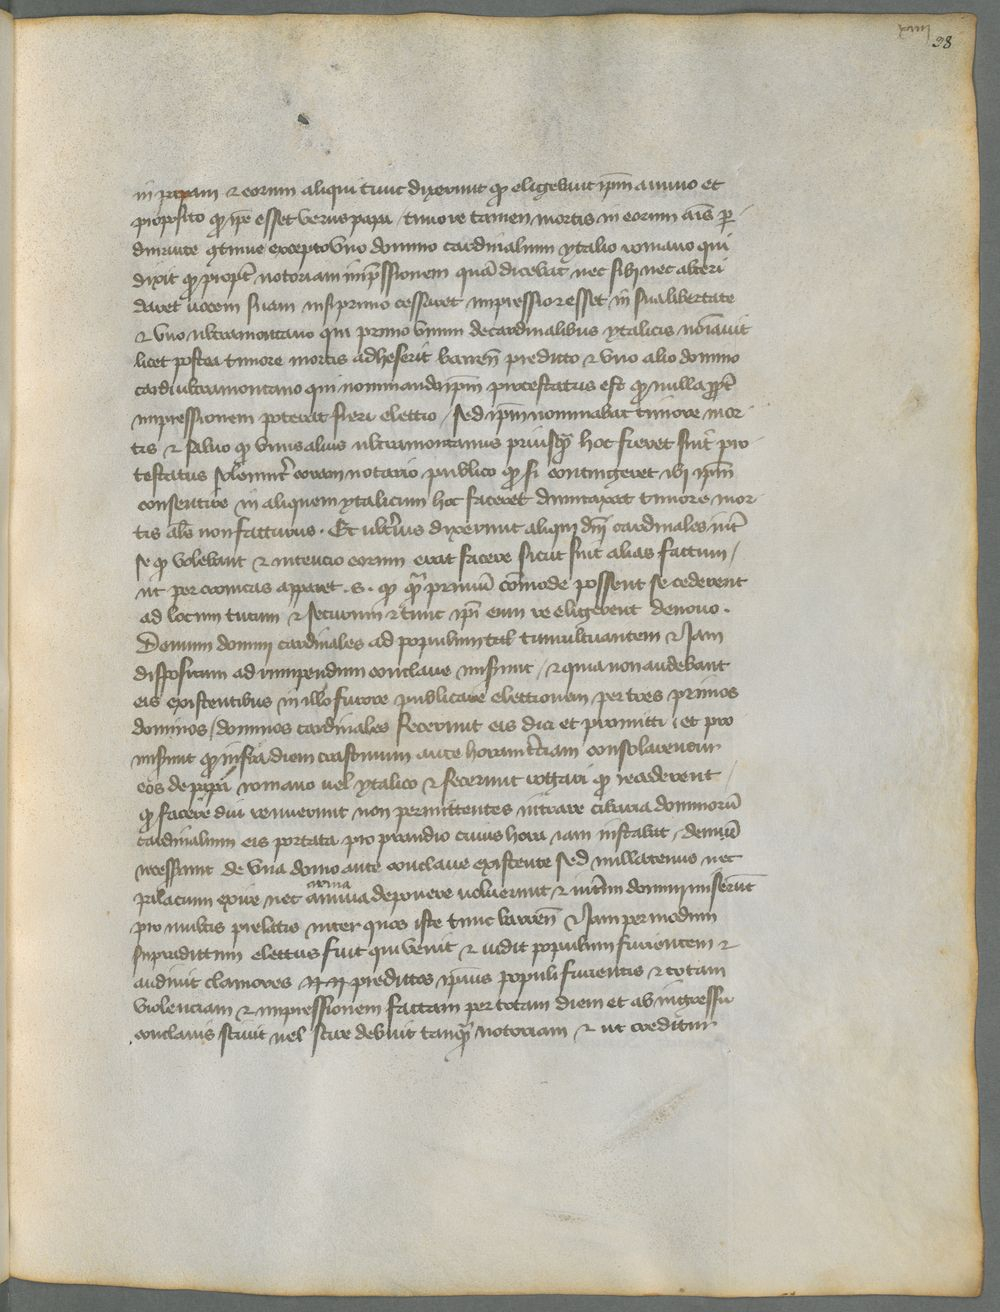 xiiij
38
in papam ⁊ eorum aliqui tunc dixerunt qͦ eligebant ip̄m animo et
proposito qͦ ip̄e esset verus papa / timore tamen mortis in eorum aīs per
durante ꝯtinue excepto vno domino cardinalium ytalico romano qui
dixit qͦ propt̄ notoriam imp̄ssionem quā dicebat nec sibi nec alteri
daret uocem suam nisi primo cessaret impressio ⁊ esset in sua libertate
⁊ vno ultramontano qui primo vnum de cardinalibus ytalicis noīauit
licet postea timore mortis adheserit barren̄ predicto ⁊ vno alio domino
cardi ultramontano qui nominando ip̄m protestatus est qͦ nulla ꝓpt̄
impressionem poterat fieri electio / sed ip̄m nominabat timore mor
tis ⁊ saluo qͦ vnus alius ultramontanus priusq̄ hoc fieret fuit pro
testatus solemnit̄ coram notario publico qͦ si contingeret ibi ip̄m
consentire in aliquem ytalicum hoc faceret dumtaxat timore mor
tis als̄ non facturus . Et ult̄ius dixerunt aliqui dn̄i cardinales int̄
se qͦ volebant ⁊ intencio eorum erat facere sicut fuit alias factum /
ut per cronicas apparet .s. qͦ q̄ primū cōmode possent se cederent
ad locum tutum ⁊ securum ⁊ tunc ip̄i eum re eligerent denouo .
Demum domini cardinales ad populum tal̄ tumultuantem ⁊ Jam
dispositum ad rumpendum conclaue miserunt / ⁊ quia non audebant
eis existentibus in illo furore publicare electionem per tres primos
dominos / dominos cardinales fecerunt eis dici et promitti / et pro
miserunt qͦ infra diem crastinum ante horam t̄ciam consolarentur
eos de papa romano uel ytalico ⁊ fecerunt rogari qͦ recederent /
qͦ facere diu renuerunt non permittentes intrare cibaria dominorū
cardinalium eis portata pro prandio cuius hora iam instabat / demū
recesserunt de vna domo ante conclaue existente sed nullatenus nec
palacium exire nec arma deponere uoluerunt ⁊ int̄im domini miserūt
arma
pro multis prelatis inter quos iste tunc barren̄ ⁊ Jam per modum
supradictum electus fuit qui venit ⁊ uidit populum furientem ⁊
audiuit clamores predictos ip̄ius populi furientis ⁊ totam
violenciam ⁊ impressionem factam per totam diem et ab ingressu
conclauis sciuit uel scire debuit tanq̄ notoriam ⁊ ut creditur